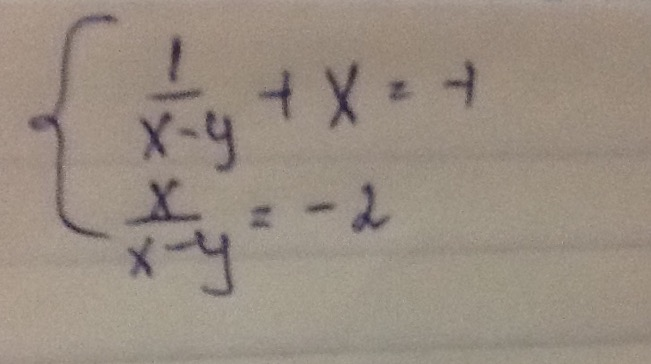 1/(x-y) + x = -1
x/(x-y) = -2